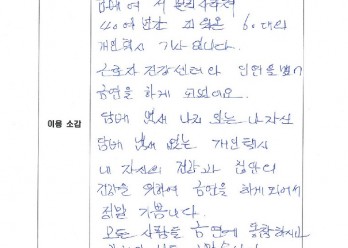 40여년간 피워온 60대의
개인택시 기사 입니다.
근로자 건강센터와 인연을 맺어
금연을 하게 되었어요.
이용 소감
담배 냄새 나지 않는 나 자신
담배 냄새 없는 개인택시
내 자신의 건강과 집안의
건강을 위하여 금연을 하게 되어서
정말 기쁩니다.
모든 사람들 금연에 동참하시고